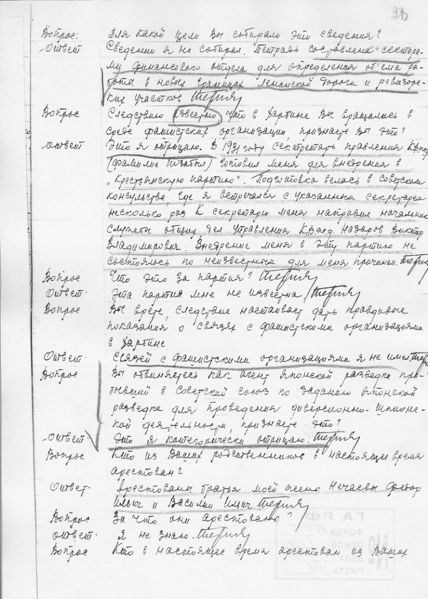 Вопрос: Для какой цели Вы собирали эти сведения?
Ответ Сведении я не собирал. Тетрадь составлена сектором
финансового отдела для определения об'ема ра-
боты в новых границах Ленинской дороги и ревизорс-
ких участков
Вопрос Следствию известно что в Харбине Вы вращались в
среде фашистских организации, признаете Вы это?
Ответ Это я отрицаю. В 1931 году секретарь правления КВжд
готовил меня для внедрения в
„Крестьянскую партию". Подготовка велась в Советском
консульстве где я встречался с указанным секретарем
несколько раз К секретарю меня направил начальник
службы общих дел Управления КВжд. Назаров Виктор
Владимирович Внедрение меня в эту партию не
состоялось по неизвестной для меня причины.
Вопрос Что это за партия?
Ответ. Эта партия мне не известна
Вопрос Вы врете, следствие настаивает дать правдивые
показания о связях с фашистскими организациями
в Харбине
Ответ. Связей с фашистскими организациями я не имел
Вопрос Вы обвиняетесь как агент японской разведки при-
бывший в Советский союз по заданию японской
разведки для проведения диверсионно-шпионс-
кой деятельности, признаете это?
Ответ Это я категорически отрицаю.
Вопрос Кто из Ваших родственников в настоящее время
арестован?
Ответ Арестованы братья моей жены Нечаевы Федор
Ильич и Василий Ильич
Вопрос За что они арестованы?
Ответ. Я не знаю.
Вопрос Кто в настоящее время арестован из Ваших